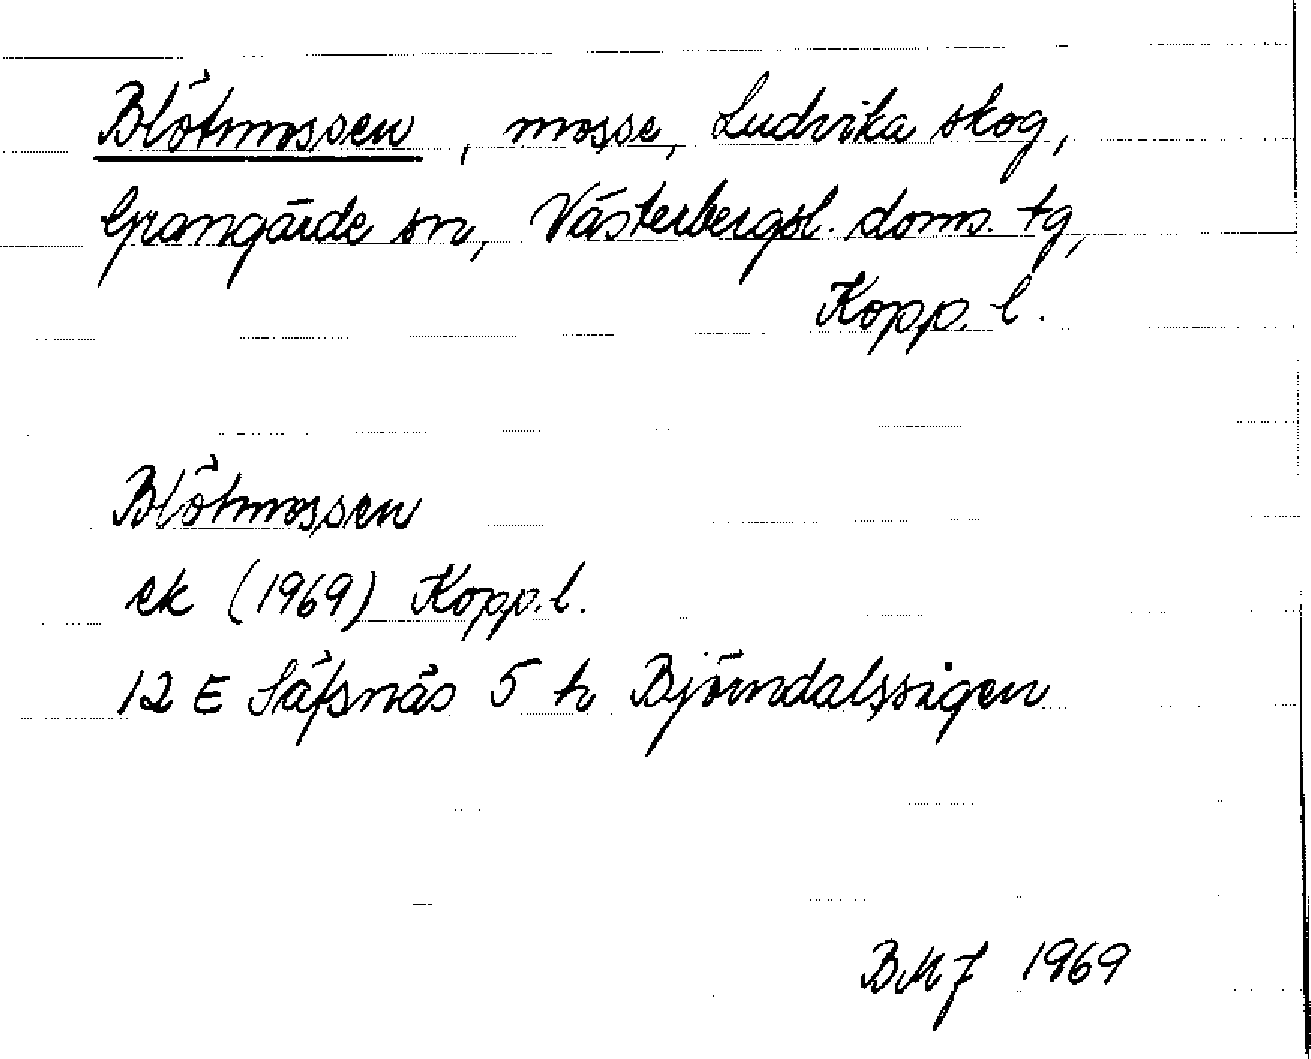 Blötmossen, mosse, Ludvika skog,
Grangärde sn, Västerbergsl. doms. tg,
Kopp. l.
Blötmossen
ek (1969) Kopp. l.
12 E Säfsnäs 5 h Björndalssigen
BMJ 1969